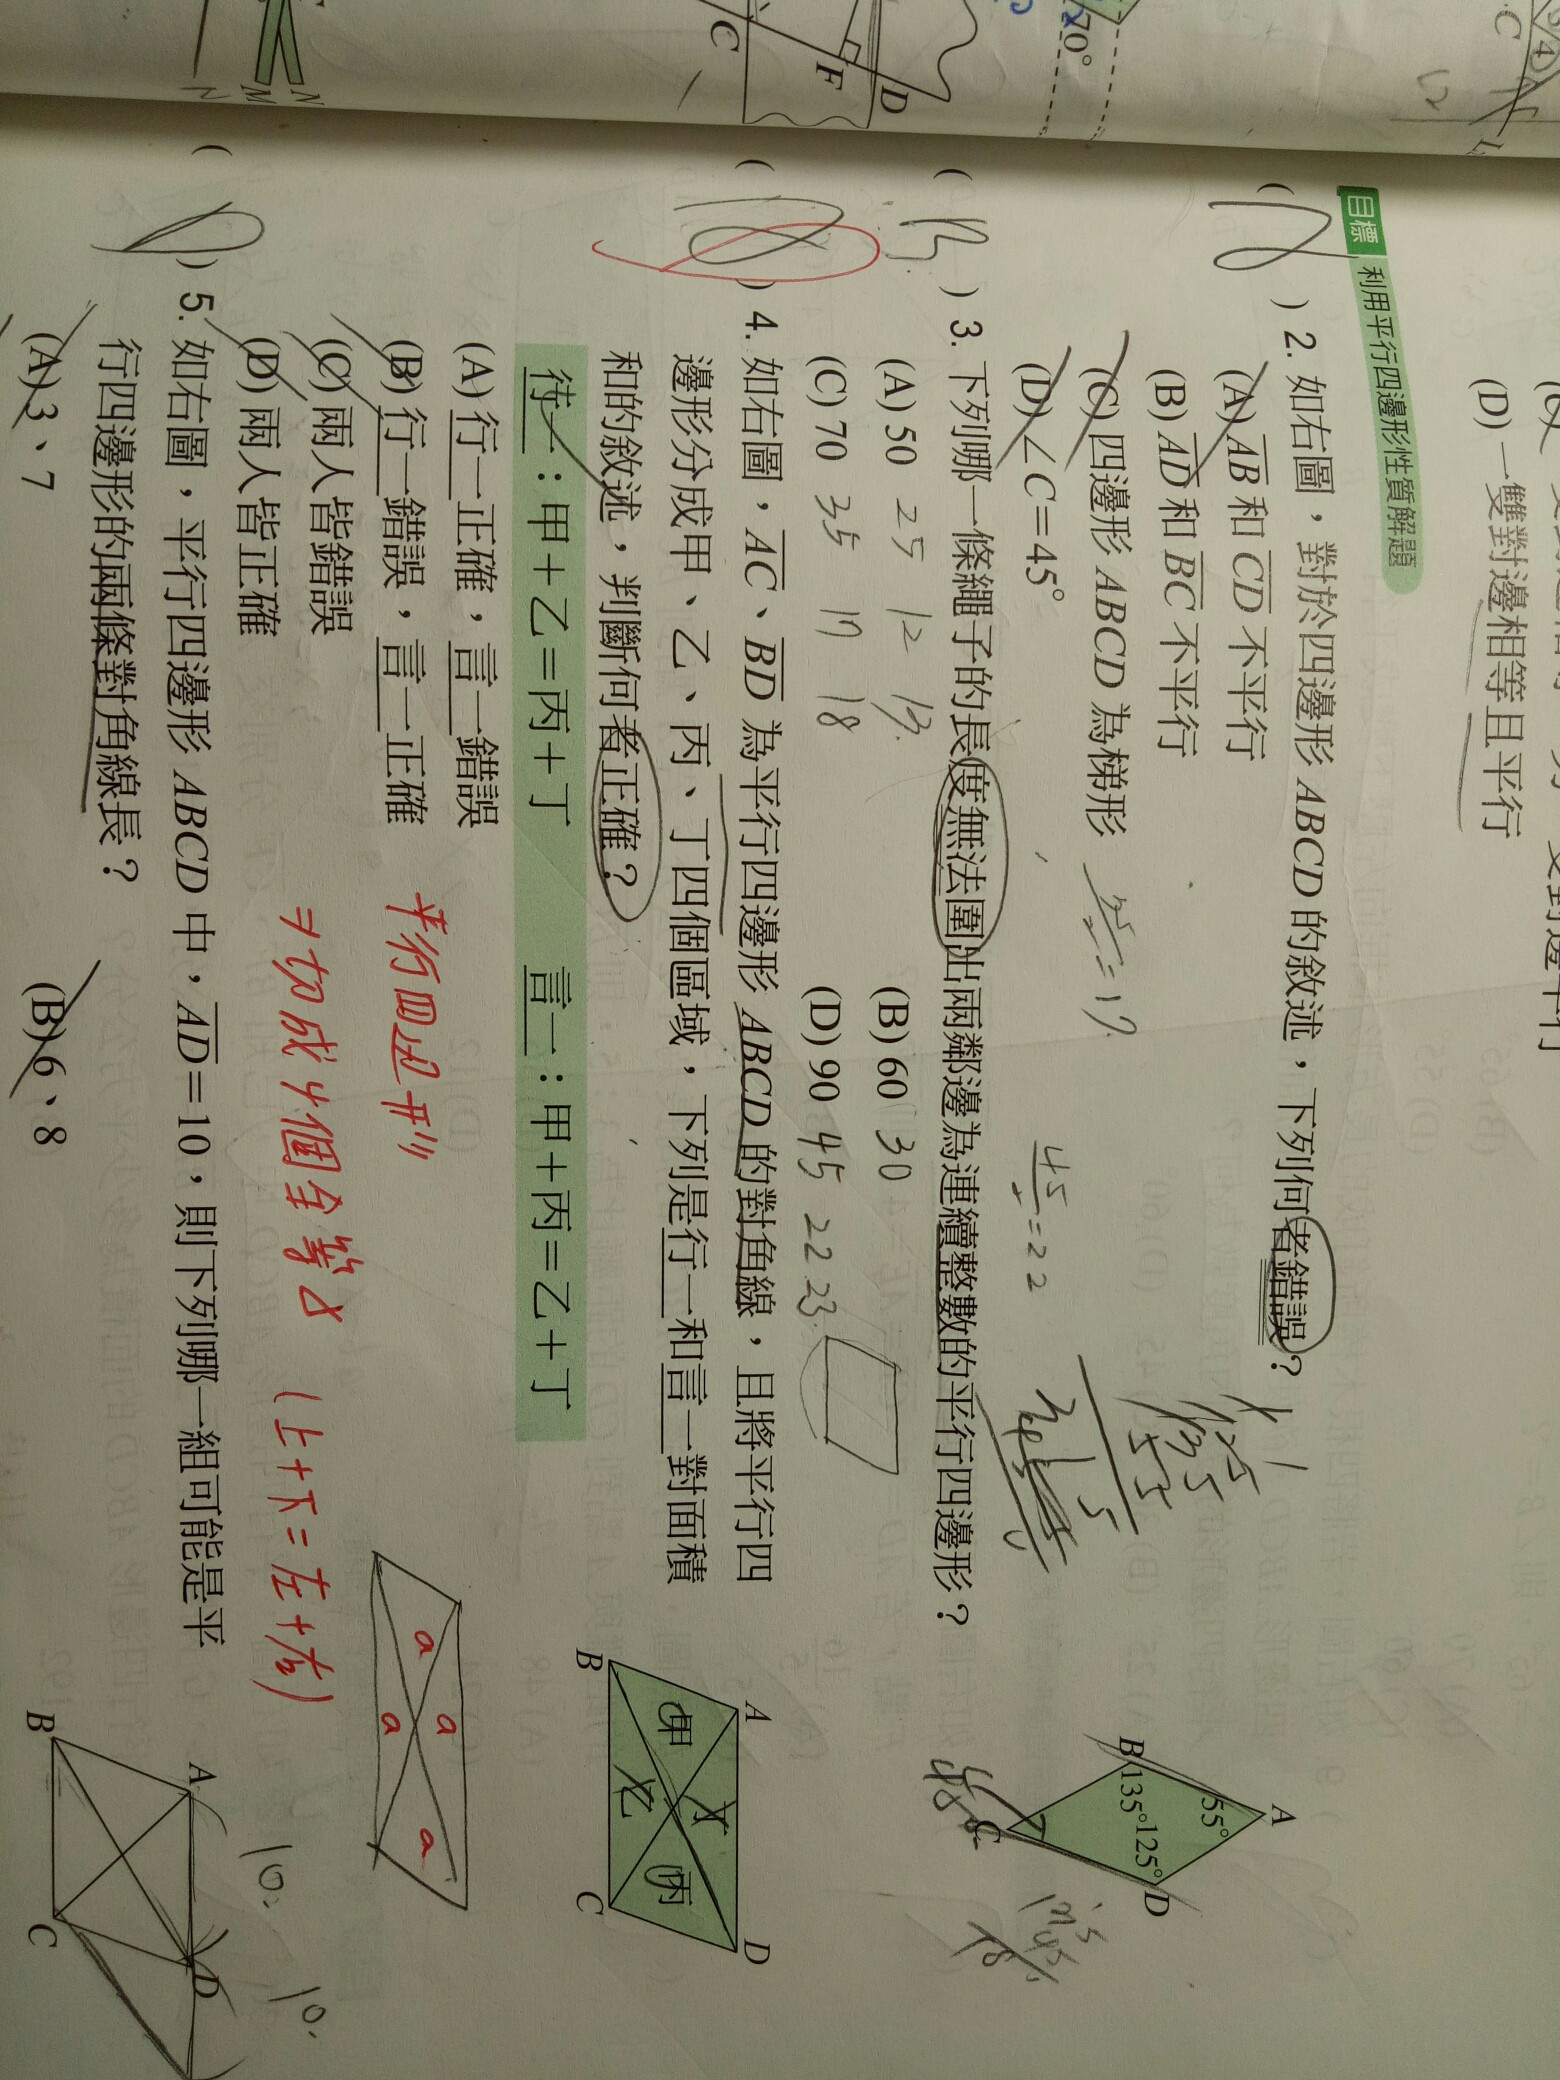 (D) 一雙對邊相等且平行
目標 利用平行四邊形性質解題
( ) 2. 如右圖，對於四邊形 ABCD 的敘述，下列何者錯誤？
(A) AB 和 CD 不平行
(B) AD 和 BC 不平行
(C) 四邊形 ABCD 為梯形
(D) ∠C＝45°
A
55°
B 135° 125° D
C
45/2 = 22
( B ) 3. 下列哪一條繩子的長度無法圍出兩鄰邊為連續整數的平行四邊形？
(A) 50 25 12 13 (B) 60 30
(C) 70 35 17 18 (D) 90 45 22 23
( ) 4. 如右圖，AC、BD 為平行四邊形 ABCD 的對角線，且將平行四
邊形分成甲、乙、丙、丁四個區域，下列是行一和言一對面積
和的敘述，判斷何者正確？
行一：甲＋乙＝丙＋丁 言一：甲＋丙＝乙＋丁
(A) 行一正確，言一錯誤
(B) 行一錯誤，言一正確
(C) 兩人皆錯誤
(D) 兩人皆正確
A D
甲 丁 丙
乙
B C
平行四邊形
⇒切成4個全等△ (上+下=左+右)
a a a
a
( ) 5. 如右圖，平行四邊形 ABCD 中，AD＝10，則下列哪一組可能是平
行四邊形的兩條對角線長？
(A) 3、7 (B) 6、8
A D
B C
10.
10.
70°
C F D
M N
N
C
L